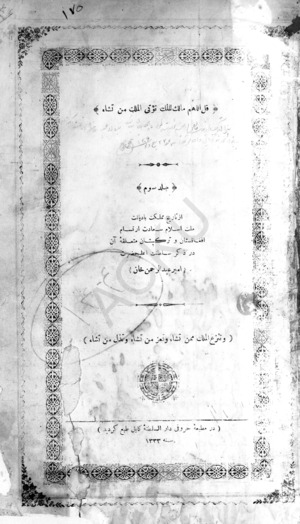 ۱۷۵
﴿ قل اللهم مالك الملك تؤتى الملك من تشاء ﴾
﴿ جلد سوم ﴾
از تاريخ مملكت باثبات
ملت اسلام سعادت ارتسام
افغانستان و تركستان متعلقهٔ آن
در ذكر سلطنت اعلیحضرت
( امير عبدالرحمن خان )
( وتنزع الملك ممن تشاء وتعز من تشاء وتذل من تشاء )
( در مطبعهٔ حروفى دار السلطنهٔ كابل طبع گرديد )
سنه ۱۳۳۳
ACKU